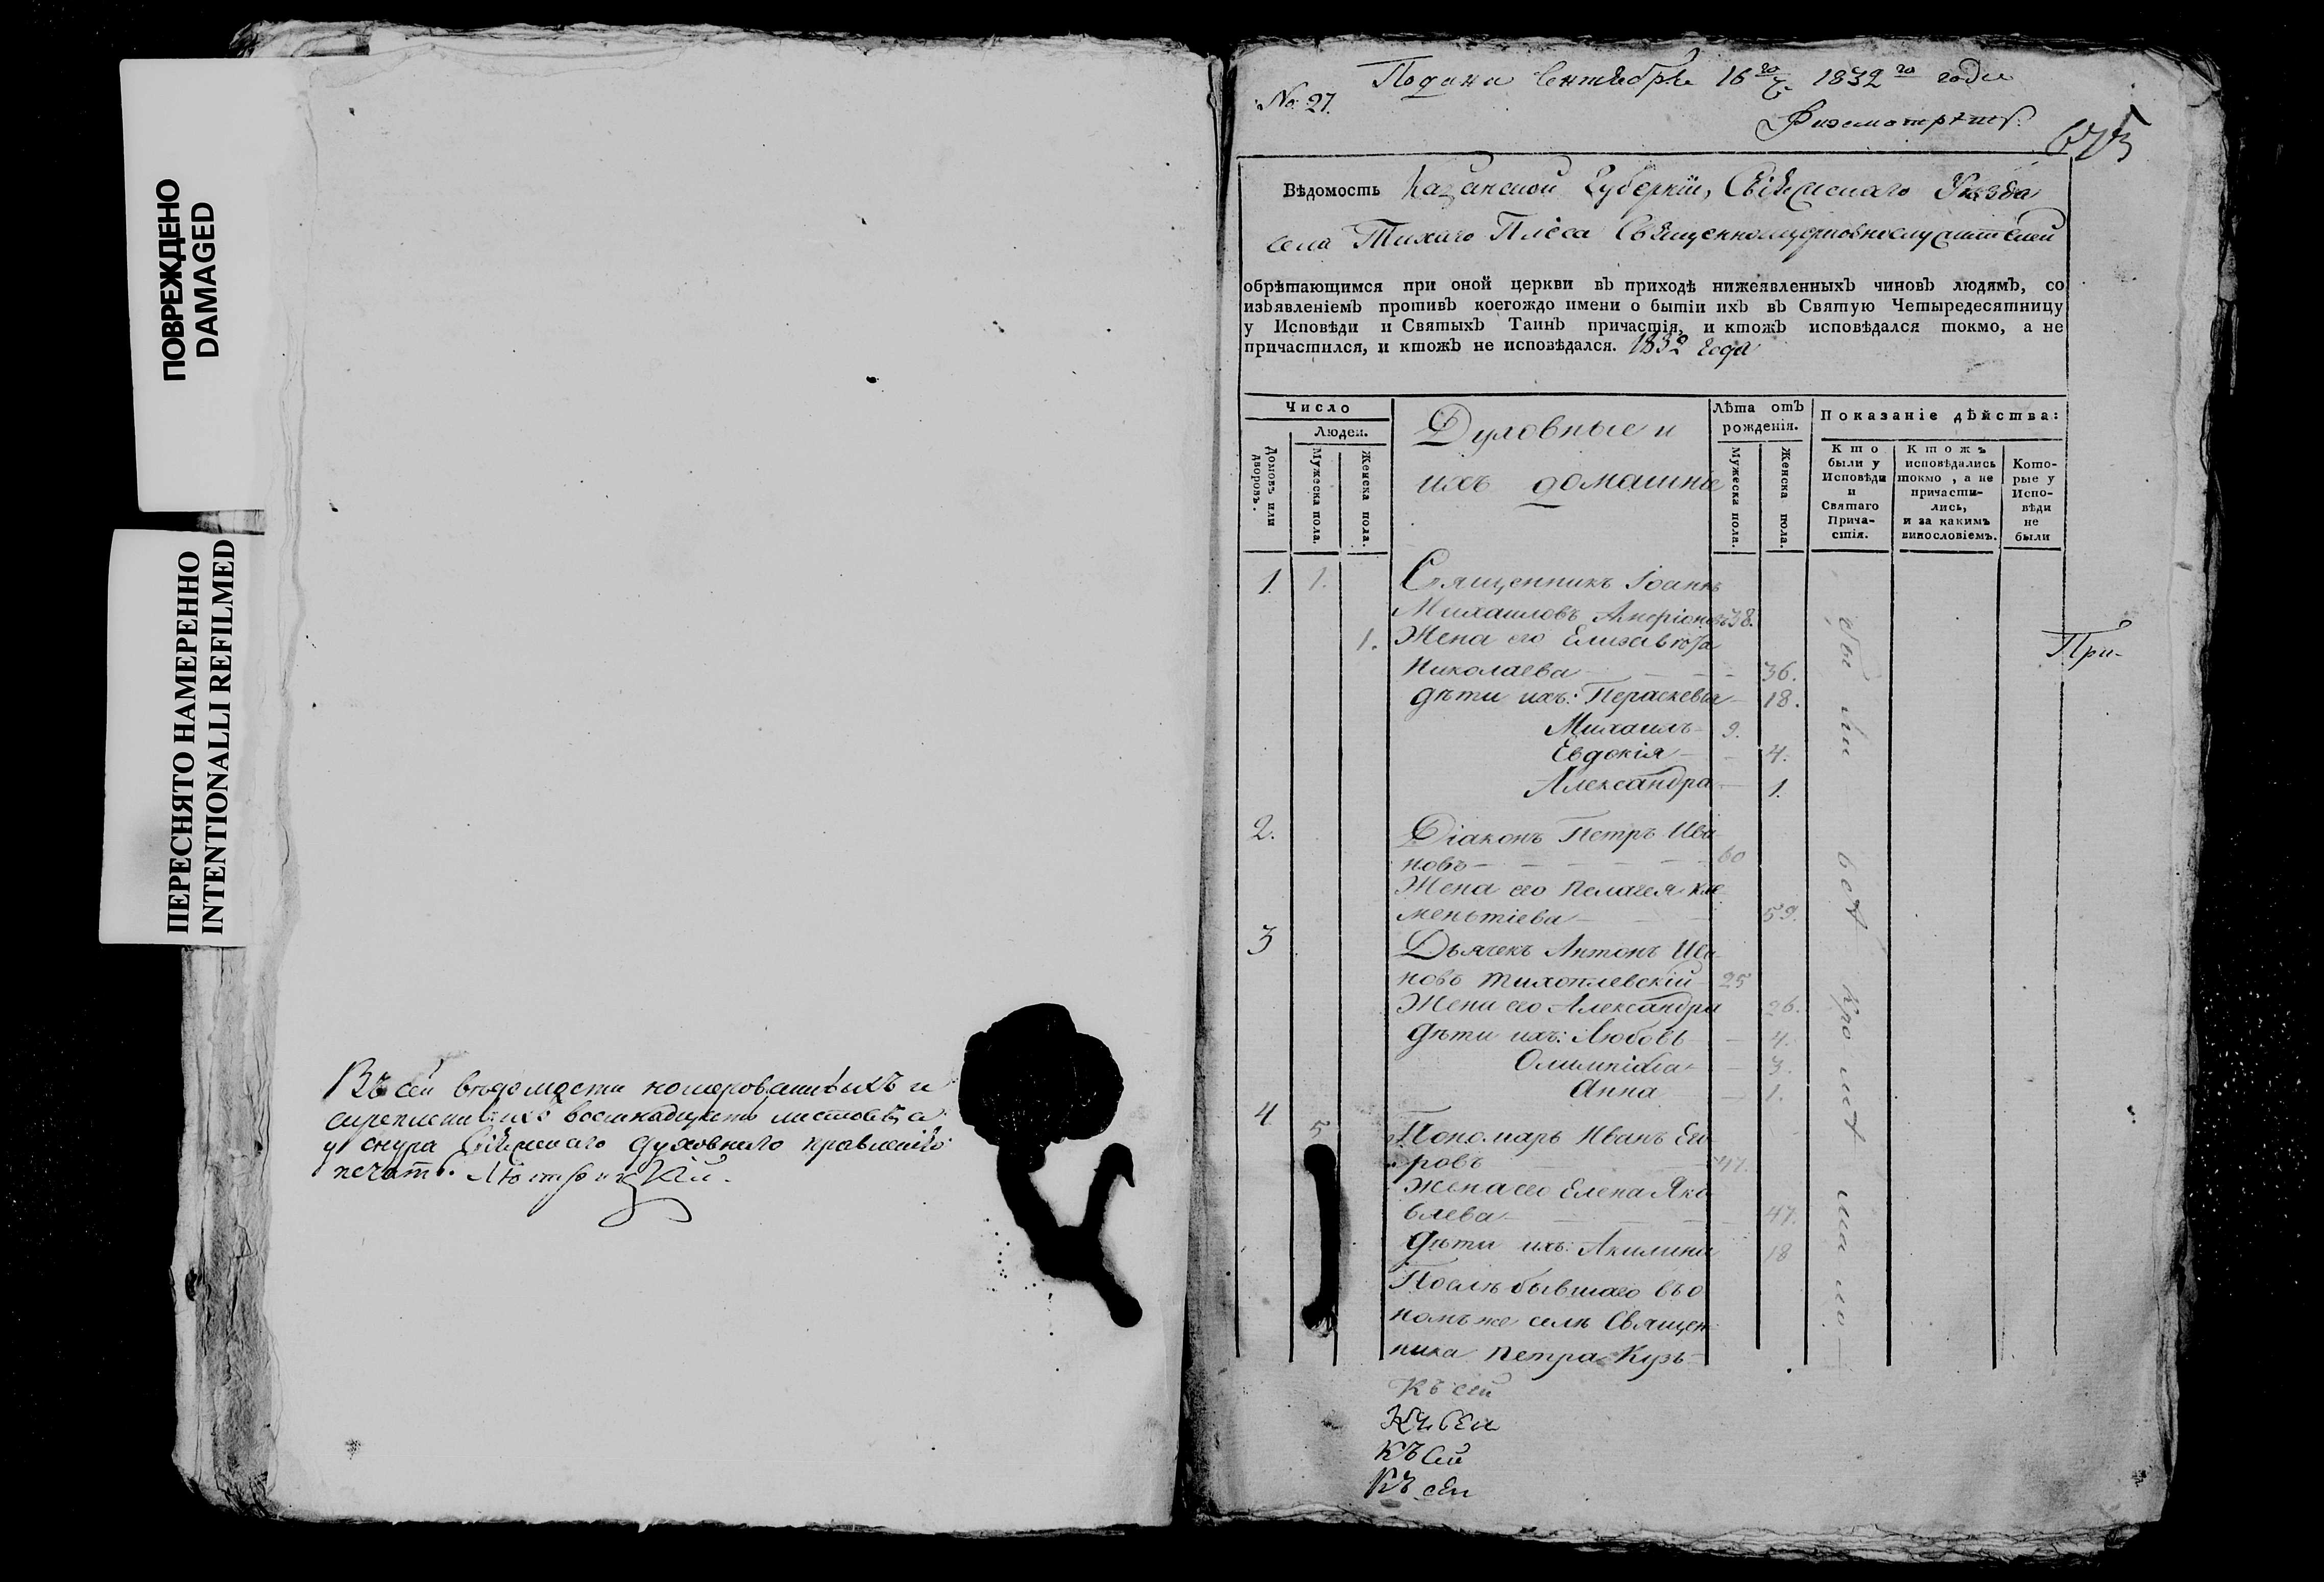 ПОВРЕЖДЕНО
DAMAGED
ПЕРЕСНЯТО НАМЕРЕННО
INTENTIONALLI REFILMED
Въ сей ведомости номерованныхъ и
скрепленныхъ восемнадцать листовъ а
у снура Свіяжскаго духовнаго правленія
печать.
Подана Сентября 16го 1832го года
№ 27.
Вѣдомость Казанской Губерніи, Свіяжскаго Уѣзда
села Тихаго Плеса Священноцерковнослужителей
обрѣтающимся при оной церкви въ приходѣ нижеявленныхъ чиновъ людямъ, со
изъявленіемъ противъ коегождо имени о бытіи ихъ въ Святую Четыредесятницу
у Исповѣди и Святыхъ Таинъ причастія, и ктожъ исповѣдался токмо, а не
причастился, и ктожъ не исповѣдался. 1832 года
Число
Людей.
Домовъ или дворовъ.
Мужеска пола.
Женска пола.
Духовные и
ихъ домашніе
Лѣта отъ
рожденія.
Мужеска пола.
Женска пола.
Показаніе дѣйства:
Кто
были у
Исповѣди
и
Святаго
Прича-
стія.
Ктожъ
исповѣдались
токмо, а не
причасти-
лись,
и за какимъ
винословіемъ.
Кото-
рые у
Испо-
вѣди
не
были
1. 1. Священникъ Іоаннъ
Михаиловъ 38.
1. Жена его Елизавета
Николаева 36.
дѣти ихъ: Пераскевія 18.
Михаилъ 9.
Евдокія 4.
Александра 1.
При-
2. Діаконъ Петръ Ива
новъ 60
Жена его Пелагея Кле
ментіева 59.
3 Дьячекъ Антонъ Ива
новъ Тихоплевскій 25
Жена его Александра 26.
дѣти ихъ: Любовь 4.
Олимпіада 3.
Анна 1.
4 5 Пономарь Иванъ Его
ровъ 47.
Жена его Елена Яко
влева 47.
Дѣти ихъ: Акилина 18
Послѣ бывшаго въ о
номъ же селѣ Священ
ника Петра Кузь
Къ сей
Къ сей
Къ сей
Къ сей